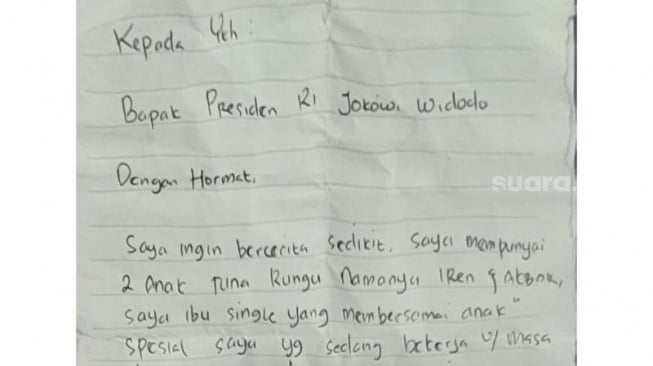 Kepada Yth :
Bapak Presiden RI Jokowi Widodo
Dengan Hormat.
suara.
Saya ingin bercerita sedikit, saya mempunyai
2 anak tuna Rungu namanya IRen & Akbar,
saya ibu single yang membersamai anak"
spesial saya yg sedang bekerja u/ masa